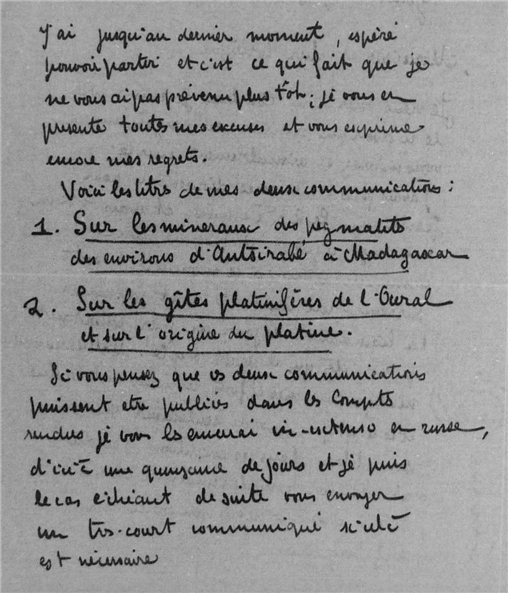 J'ai jusqu'au dernier moment, espéré
pouvoir partir et c'est ce qui fait que je
ne vous ai pas prévenu plus tôt; je vous en
présente toutes mes excuses et vous exprime
encore mes regrets.
Voici les titres de mes deux communications:
1. Sur les mineraux des pegmatites
des environs d'Antsirabé à Madagascar
2. Sur les gîtes platinifères de l'Oural
et sur l'origine du platine.
Si vous pensez que ces deux communications
puissent etre publiés dans les Compts
rendus je vous les enverrai in-extenso en
d'ici à une quinzaine de jours et je puis
le cas échéant de suite vous envoyer
un très-court communiqué si celà
est nécessaire